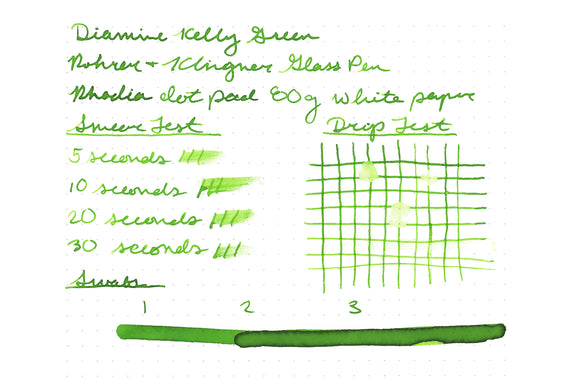 Diamine Kelly Green
Rohrer + Klingner Glass Pen
Rhodia dot pad 80g white paper
Smear Test
Drip Test
5 seconds
10 seconds
20 seconds
30 seconds
Swab
1 2 3